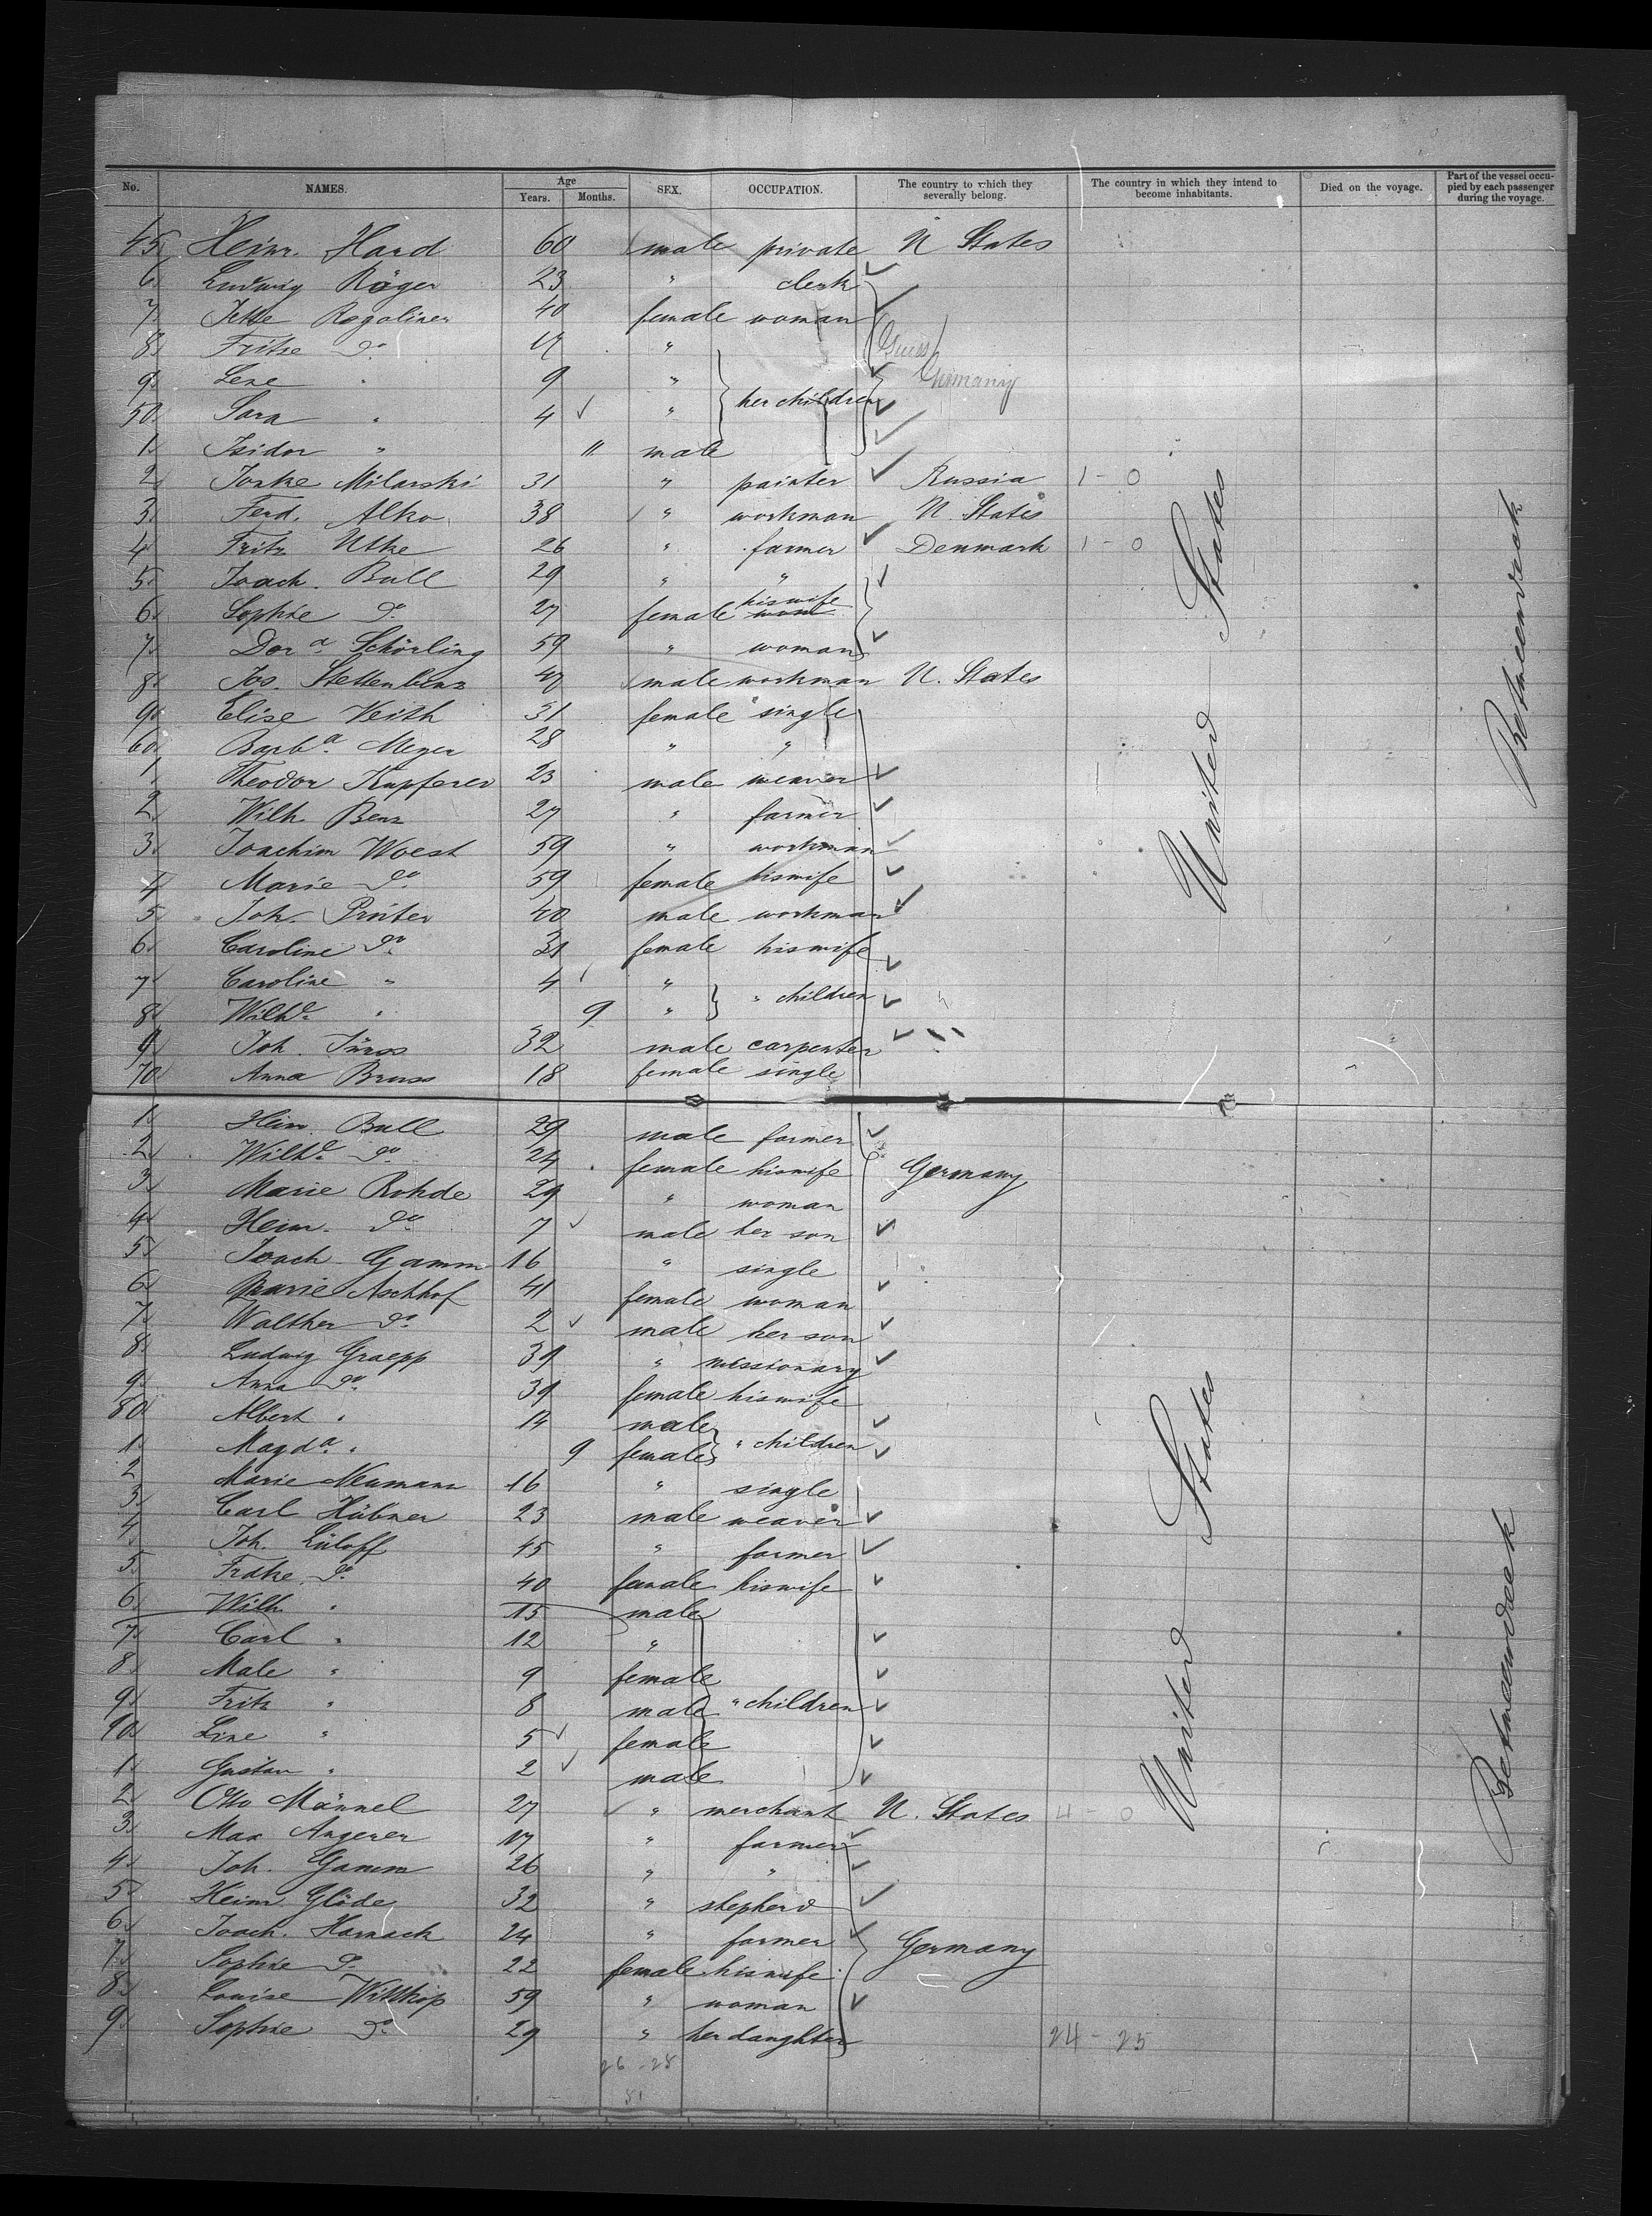 No. NAMES. Age Years. Months. SEX. OCCUPATION. The country to which they severally belong. The country in which they intend to become inhabitants. Died on the voyage. Part of the vessel occupied by each passenger during the voyage.
45 Heinr. Hard 60 male private U States
6 Ludwig Räger 23 " clerk
7 Jette Rogoliner 40 female woman
8 Fritze do 17 "
9 Lene " 9 " her children Germany
50 Sara " 4 "
1 Isidor " 11 male
2 Janke Milarski 31 " painter Russia 1 - 0
3 Ferd. Alko 38 " workman U. States
4 Fritz Utke 26 " farmer Denmark 1 - 0
5 Joach. Bull 29 " "
6 Sophie do 27 female his wife
7 Dora Schörling 59 " woman
8 Jos. Stettenbenz 47 male workman U. States
9 Elise Veith 31 female single
60 Barba Meyer 28 " "
1 Theodor Kupferer 23 male weaver
2 Wilh. Benz 27 " farmer
3 Joachim Woest 59 " workman
4 Marie do 59 female his wife
5 Joh. Prüter 40 male workman
6 Caroline do 31 female his wife
7 Caroline " 4 " " children
8 Wilhe " 9 "
9 Joh. Jürss 32 male carpenter
70 Anna Bruss 18 female single
United States
Betweendeck
1 Heinr. Bull 29 male farmer
2 Wilhe do 24 female his wife Germany
3 Marie Rohde 29 " woman
4 Heinr. do 7 male her son
5 Joach. Gamm 16 " single
6 Marie Aschhof 41 female woman
7 Walther do 2 male her son
8 Ludwig Graepp 39 " missionary
9 Anna do 39 female his wife
80 Albert " 14 male " children
1 Magda " 9 female
2 Marie Neumann 16 " single
3 Carl Hübner 23 male weaver
4 Joh. Lüloff 45 " farmer
5 Fridke do 40 female his wife
6 Wilh. " 15 male
7 Carl " 12 "
8 Male " 9 female
9 Fritz " 8 male " children
90 Line " 5 female
1 Gustav " 2 male
2 Otto Männel 27 " merchant U. States 4 - 0
3 Max Angerer 17 " farmer
4 Joh. Gamm 26 " "
5 Heinr. Glöde 32 " shepherd
6 Joach. Harnack 24 " farmer Germany
7 Sophie do 22 female his wife
8 Louise Witthöp 59 " woman
9 Sophie do 29 " her daughter 24 - 25
United States
Betweendeck
26 - 28
51